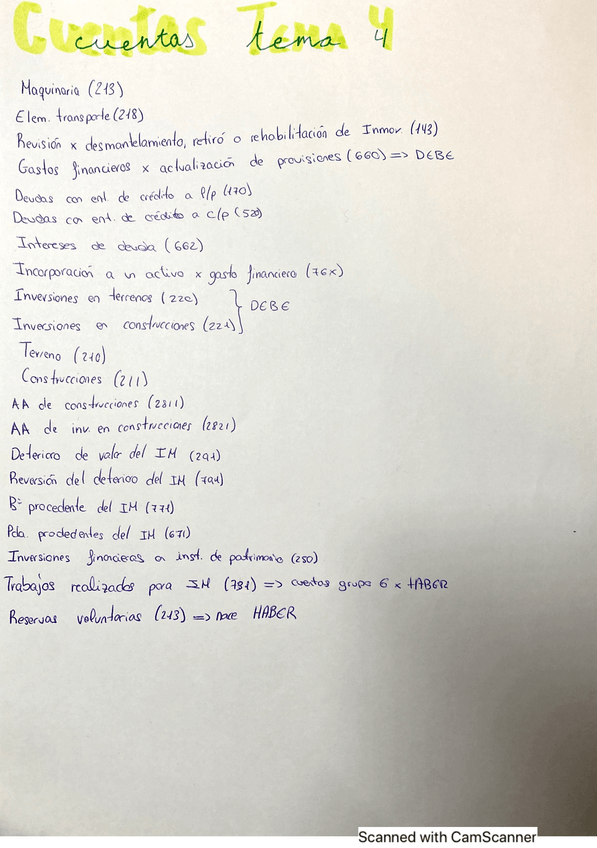 Cuentas Tema 4
cuentas tema 4
Maquinaria (213)
Elem. transporte (218)
Revisión x desmantelamiento, retiro o rehabilitación de Inmov. (143)
Gastos financieros x actualización de provisiones (660) => DEBE
Deudas con ent. de crédito a l/p (170)
Deudas con ent. de crédito a c/p (520)
Intereses de deuda (662)
Incorporación a un activo x gasto financiero (76x)
Inversiones en terrenos (220)
DEBE
Inversiones en construcciones (221)
Terreno (210)
Construcciones (211)
AA de construcciones (2811)
AA de inv. en construcciones (2821)
Deterioro de valor del IM (291)
Reversión del deterioo del IM (791)
Bº procedente del IM (771)
Pda. prodedentes del IM (671)
Inversiones financieras a inst. de patrimonio (250)
Trabajos realizados para IM (731) => cuentas grupo 6 x HABER
Reservas voluntarias (213) => nace HABER
Scanned with CamScanner